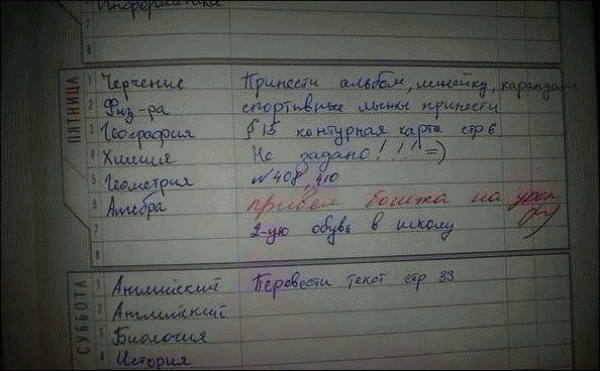 Информатика
7
8
ПЯТНИЦА
1 Черчение Принести альбом, линейку, карандаш
2 Физ-ра спортивные лыжы принести
3 География § 15 контурная карта стр 6
4 Химия Не задано!!!! =)
5 Геометрия №408, 410
6 Алгебра привел бомжа на урок
7 2-ую обувь в школу
8
СУББОТА
1 Английский Перевести текст стр 33
2 Английский
3 Биология
4 История